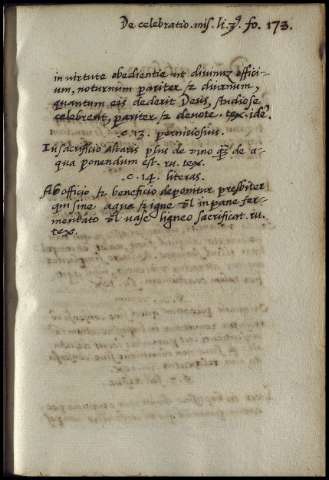 De celebratio. mis. li. 3º. fo. 173.
in virtute obedientie ut divinũ offici-
um, noturnum pariter & diurnum,
quantum eis dederit Deus, studiose
celebrent, pariter & devote. tex. ide.
c. 13. perniciosius.
In sacrificio altaris plus de vino q̃ de a-
qua ponendum est. ru. tex.
.c. 14. literas.
Ab officio & beneficio deponitur presbiter
qui sine aqua & igne vl in pane fer-
mentato vl vase ligneo sacrificat. ru.
tex.